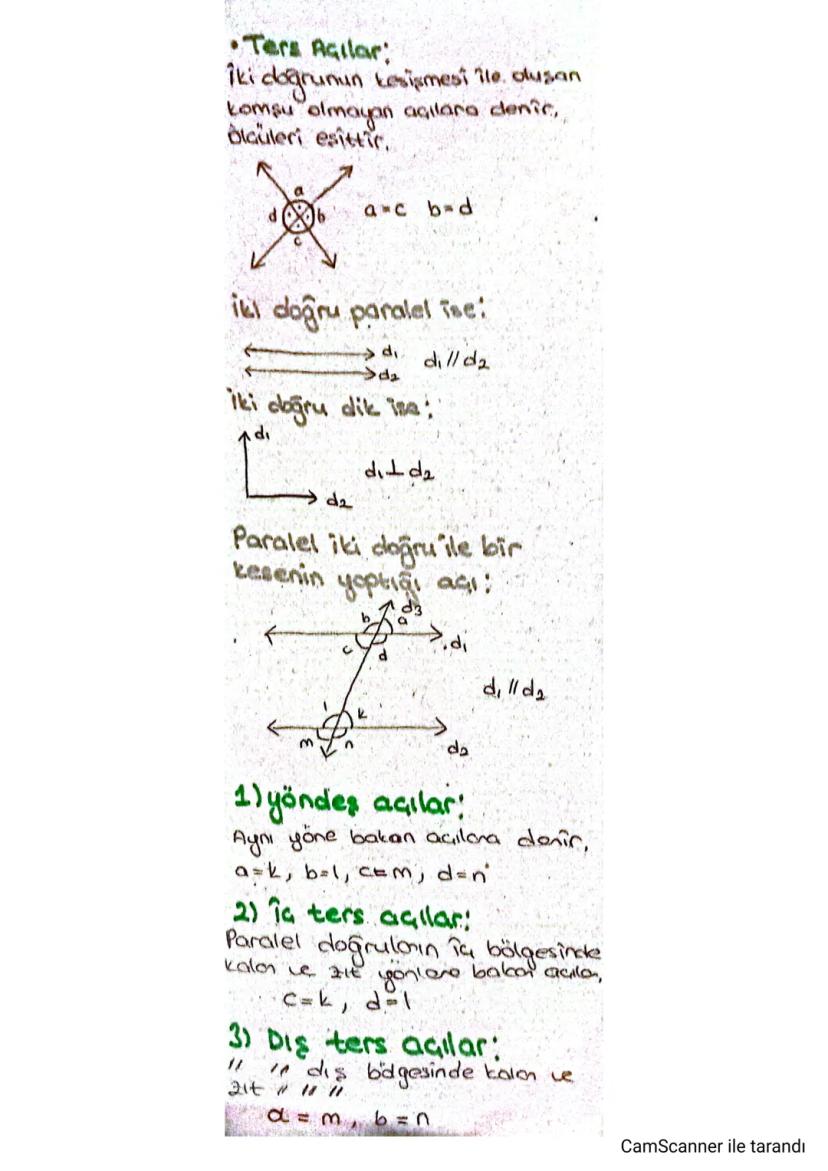 • Ters Açılar:
İki doğrunun kesişmesi ile oluşan
komşu olmayan açılara denir.
Ölçüleri eşittir.
a
d b
c
a=c b=d
İki doğru paralel ise:
d₁
d₂
d₁//d₂
İki doğru dik ise:
d₁
d₁⊥d₂
d₂
Paralel iki doğru ile bir
kesenin yaptığı açı:
d₃
b a
d₁
c d
d₁//d₂
l k
m n
d₂
1) yöndeş açılar:
Aynı yöne bakan açılara denir.
a=k, b=l, c=m, d=n
2) İç ters açılar:
Paralel doğruların iç bölgesinde
kalan ve zıt yönlere bakan açılar.
c=k, d=l
3) Dış ters açılar:
" " dış bölgesinde kalan ve
zıt " " "
a = m, b = n
CamScanner ile tarandı